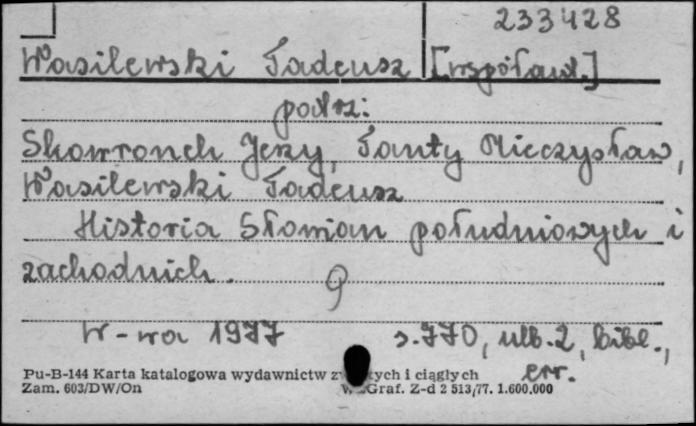 233428
Wasilewski Tadeusz [współaut.]
patrz:
Skowronek Jerzy, Tanty Mieczysław,
Wasilewski Tadeusz
Historia Słowian południowych i
zachodnich.
W-wa 1977 s. 770, ulb. 2, bibl.,
err.
Pu-B-144 Karta katalogowa wydawnictw i ciągłych
Zam. 603/DW/On Graf. Z-d 2 513/77. 1.600.000